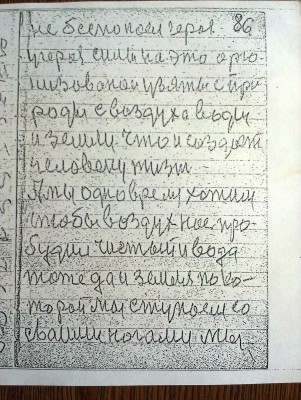 не беспокоем героя 86
у героя силы на это арга
низовоной взяты с при
роды с воздуха воды
и земли что и создает
человеку жизн
А мы одно время хотим
чтобы воздух нас про
будил чистый и вода
тоже да и земля по ко-
торой мы ступаем со
своими ногами мы